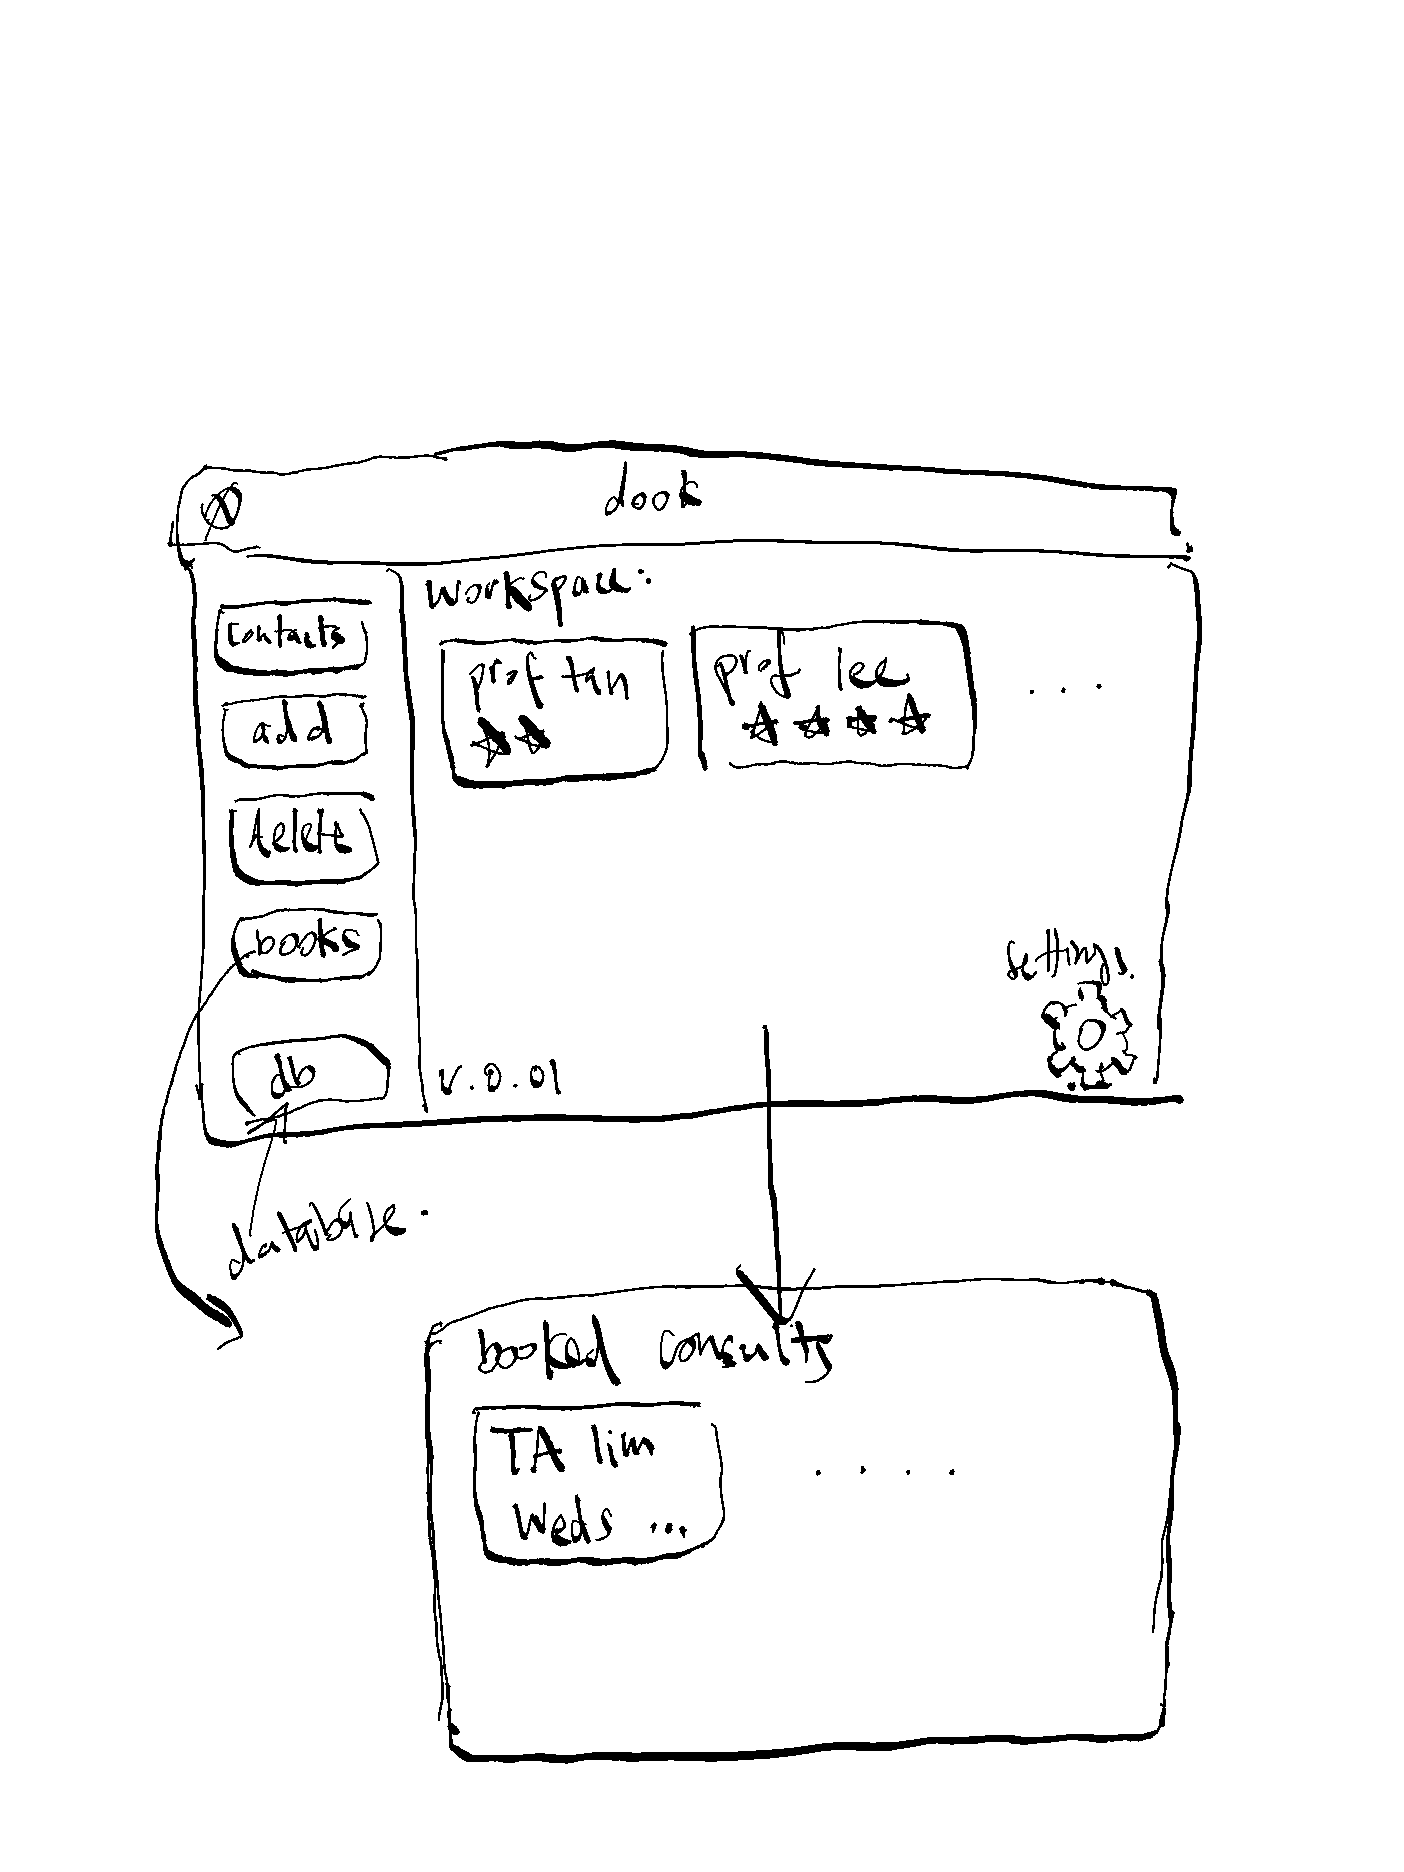 dook
contacts
add
delete
books
db
workspace:
prof tan
prof lee
. . .
settings.
v.0.01
database.
booked consults
TA lim
Weds ...
. . . .